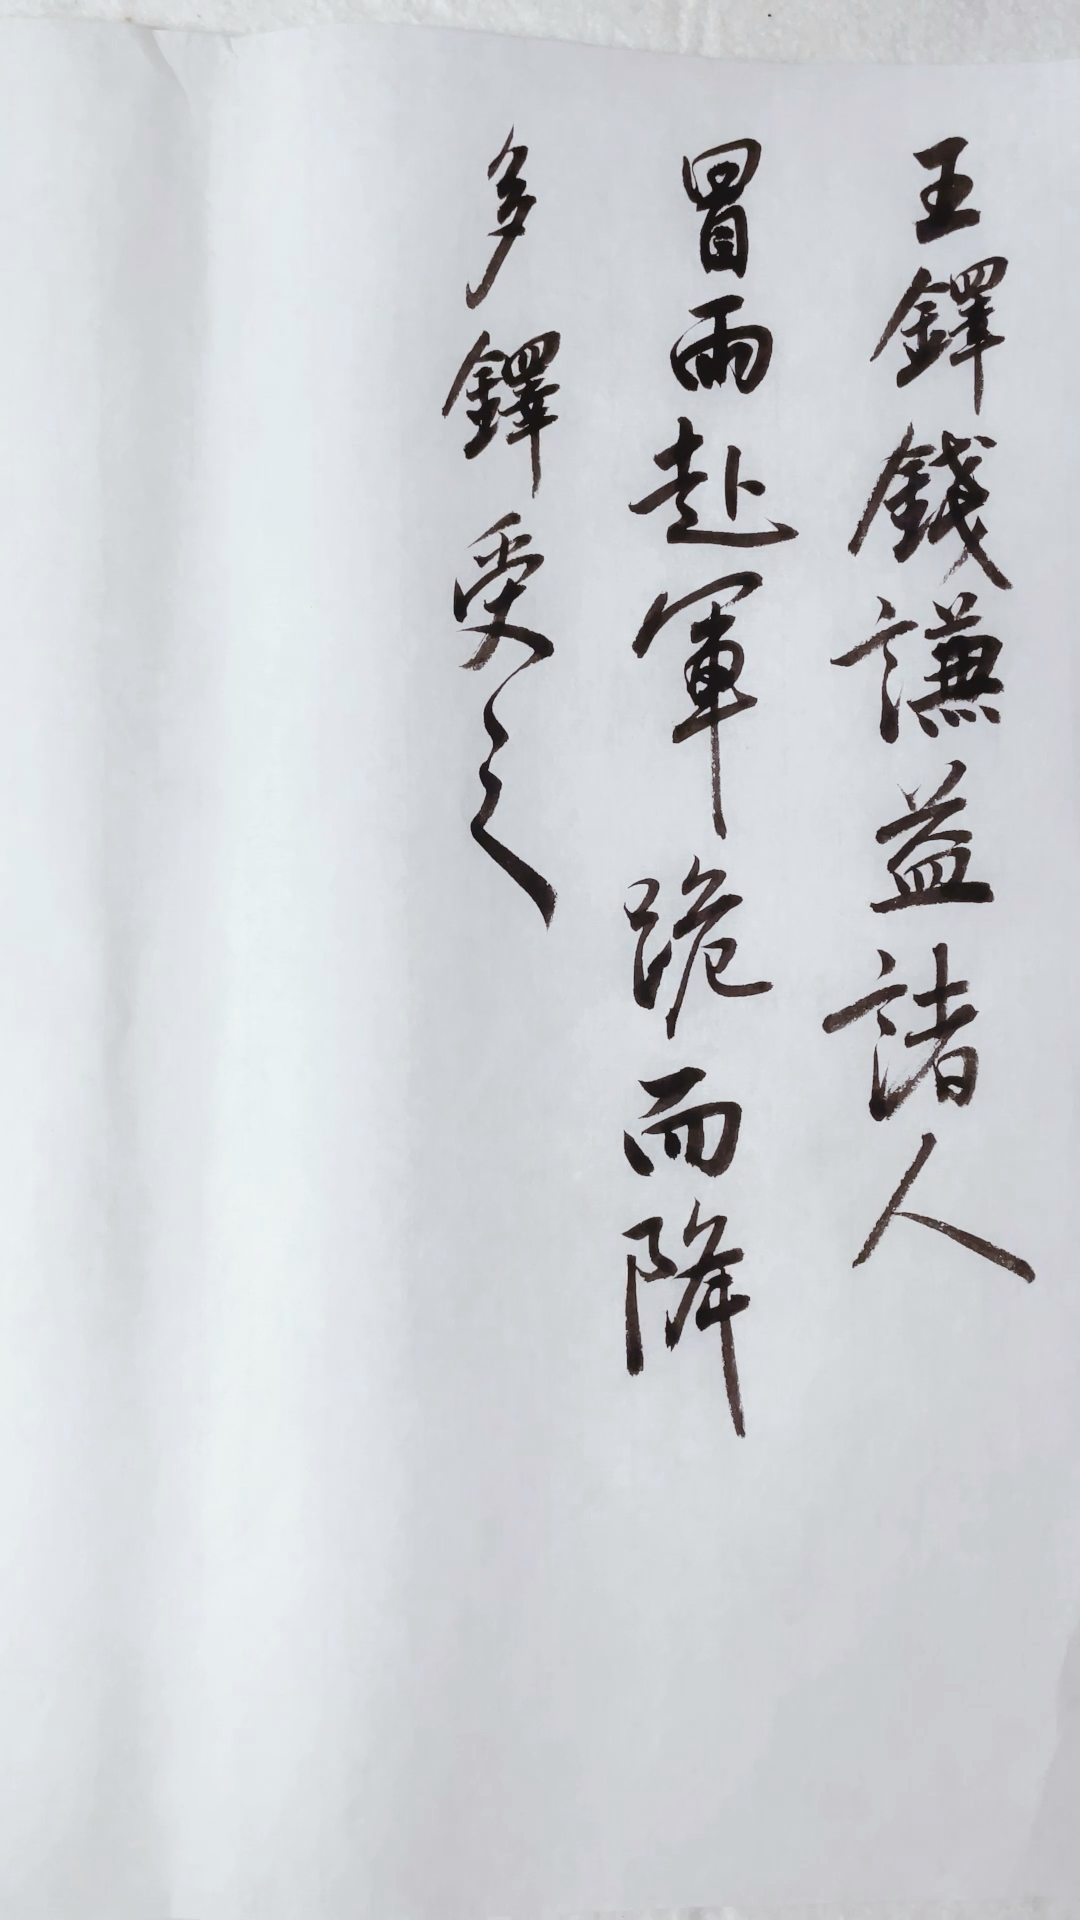 王鐸錢謙益諸人
冒雨赴軍跪而降
多鐸受之